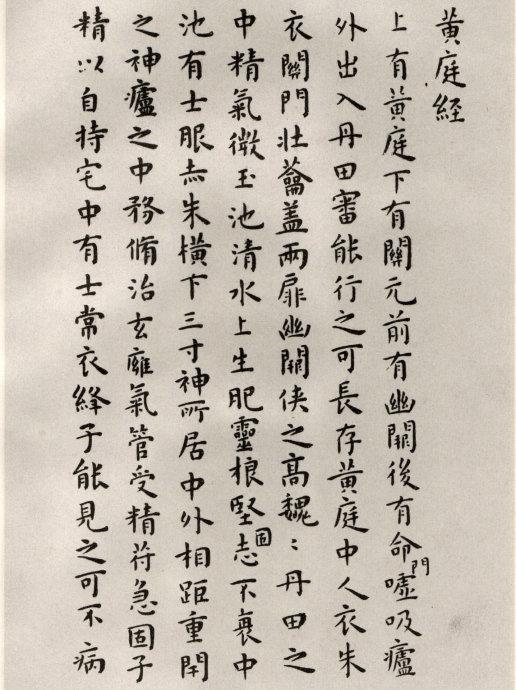 黃庭経
上有黃庭下有關元前有幽關後有命門噓吸廬
外出入丹田審能行之可長存黃庭中人衣朱
衣關門壯蘥蓋兩扉幽關俠之高魏〻丹田之
中精氣微玉池清水上生肥靈根堅固志不衰中
池有士服赤朱橫下三寸神所居中外相距重閉
之神廬之中務脩治玄廱氣管受精苻急固子
精以自持宅中有士常衣絳子能見之可不病